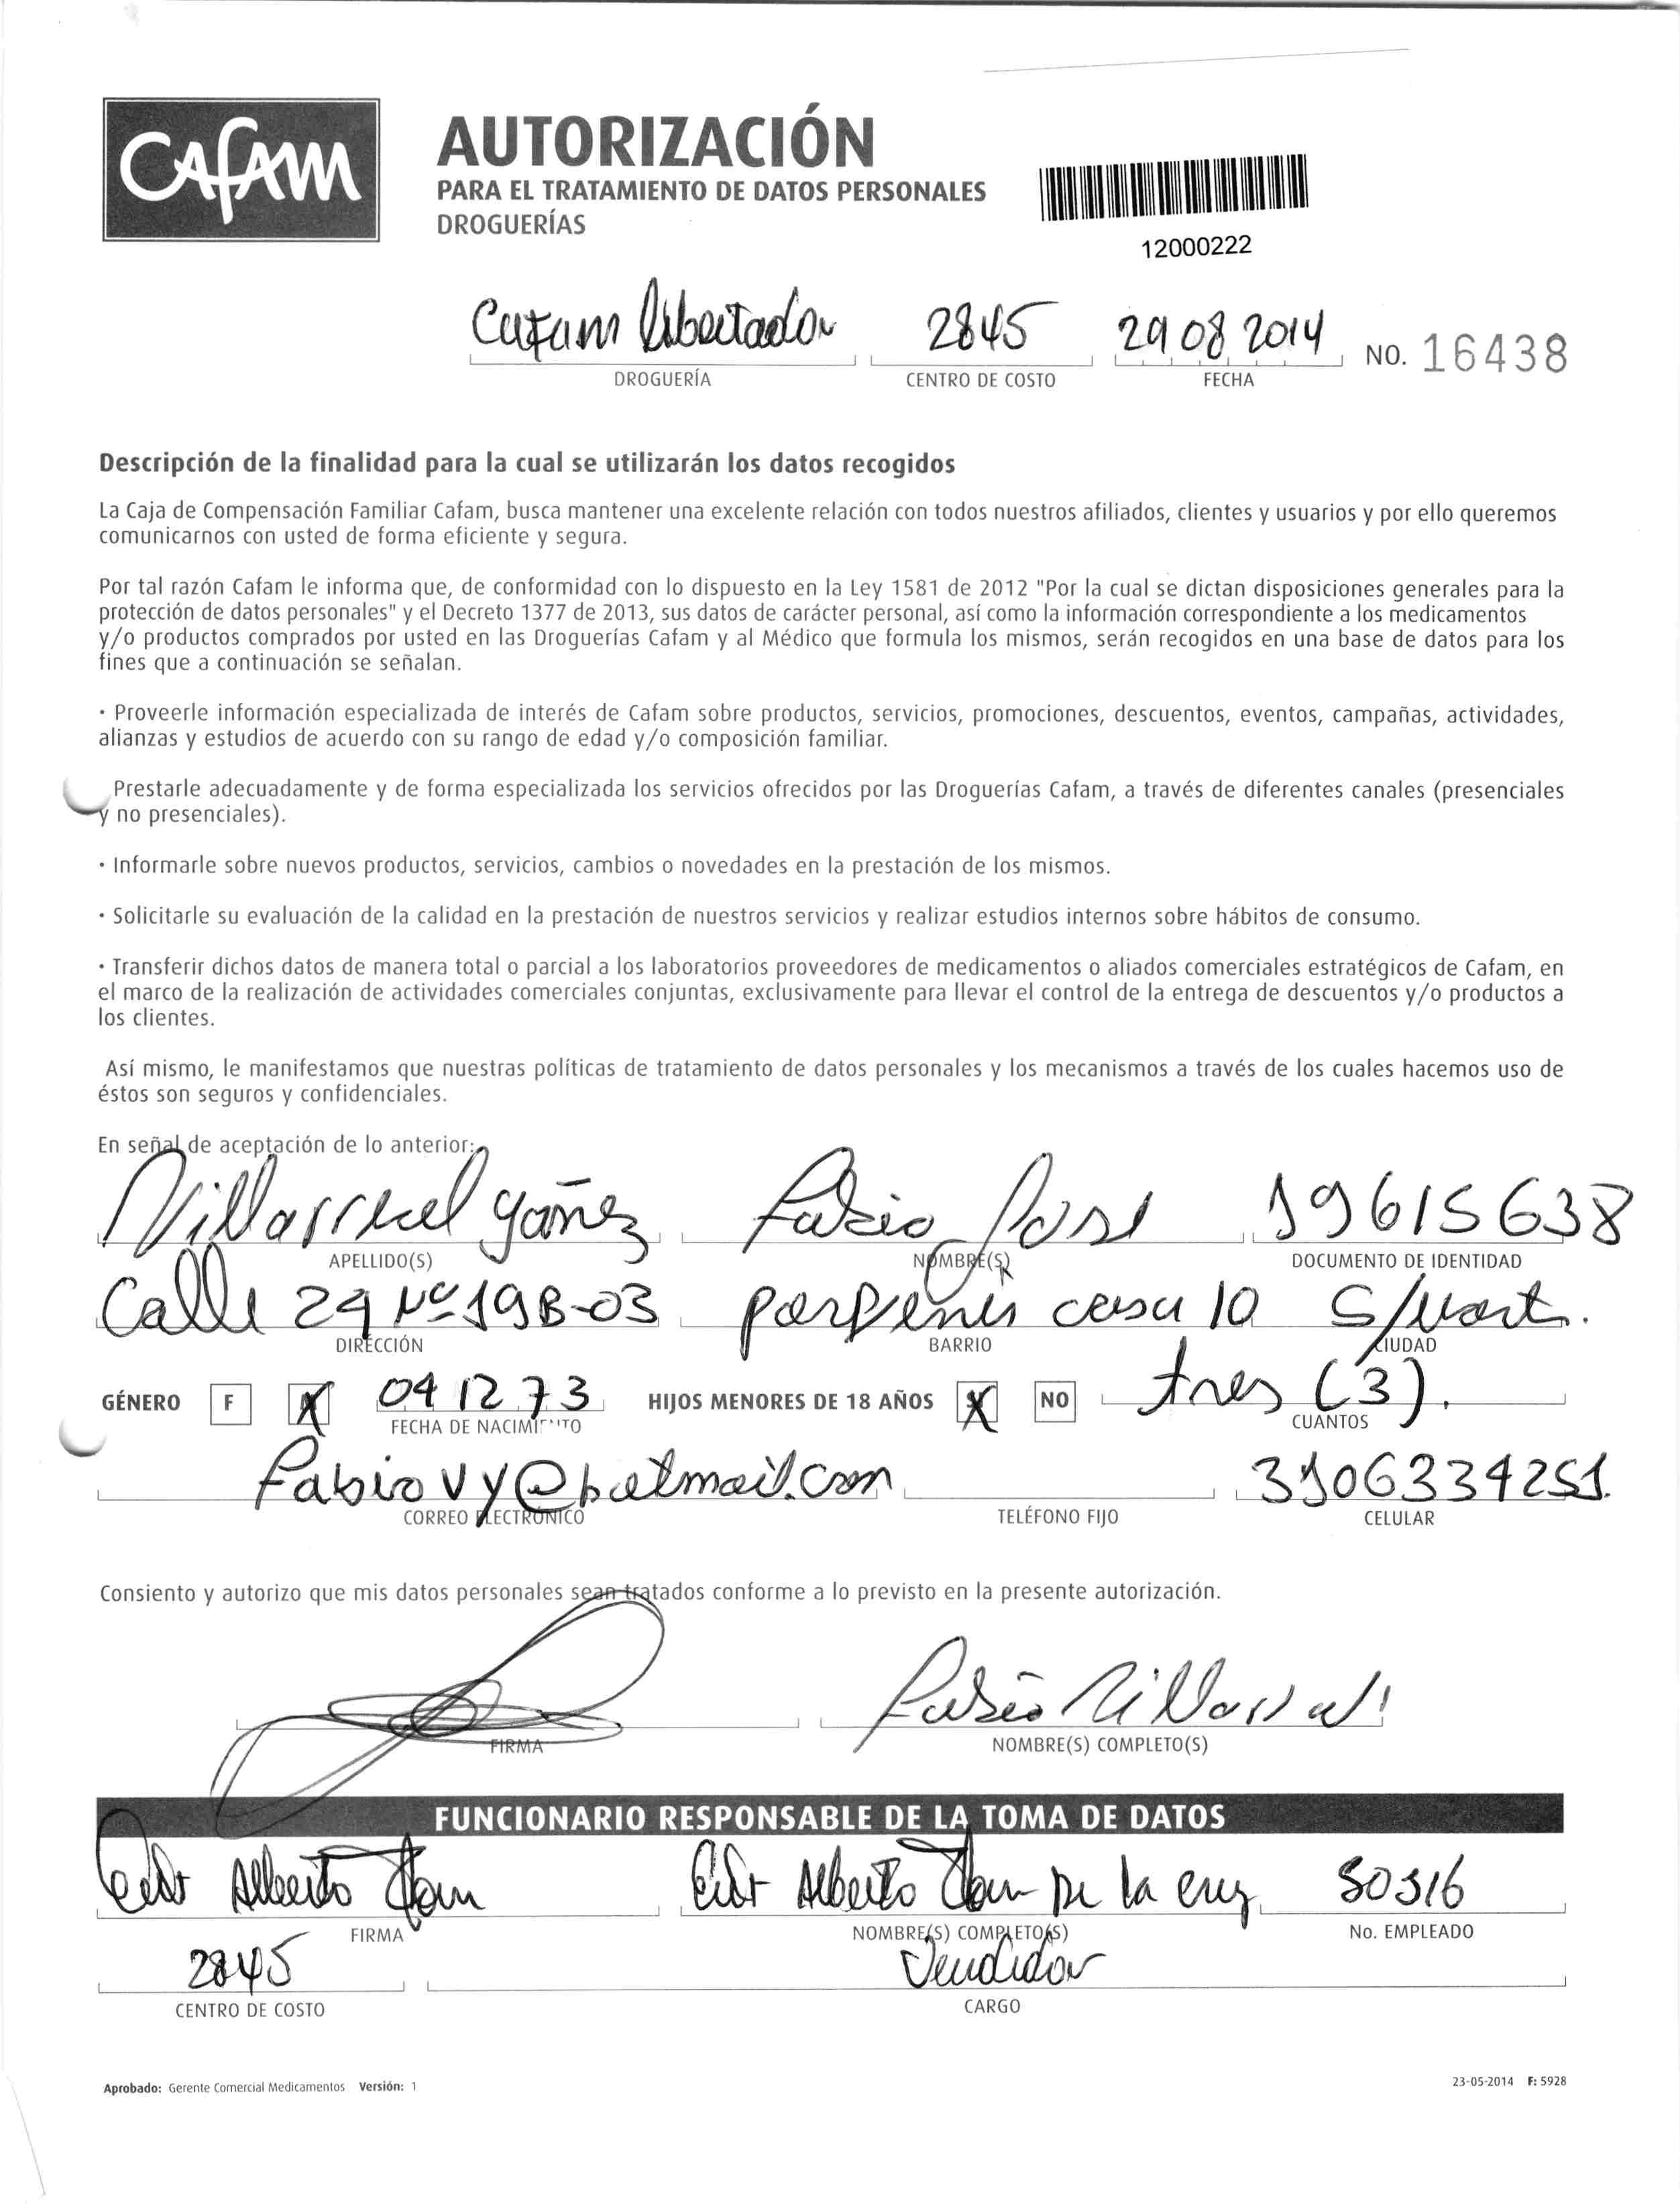 Cafam
AUTORIZACIÓN
PARA EL TRATAMIENTO DE DATOS PERSONALES
DROGUERÍAS
12000222
Cafam Libertador 2845 29 08 2014 NO. 16438
DROGUERÍA CENTRO DE COSTO FECHA
Descripción de la finalidad para la cual se utilizarán los datos recogidos
La Caja de Compensación Familiar Cafam, busca mantener una excelente relación con todos nuestros afiliados, clientes y usuarios y por ello queremos
comunicarnos con usted de forma eficiente y segura.
Por tal razón Cafam le informa que, de conformidad con lo dispuesto en la Ley 1581 de 2012 "Por la cual se dictan disposiciones generales para la
protección de datos personales" y el Decreto 1377 de 2013, sus datos de carácter personal, así como la información correspondiente a los medicamentos
y/o productos comprados por usted en las Droguerías Cafam y al Médico que formula los mismos, serán recogidos en una base de datos para los
fines que a continuación se señalan.
· Proveerle información especializada de interés de Cafam sobre productos, servicios, promociones, descuentos, eventos, campañas, actividades,
alianzas y estudios de acuerdo con su rango de edad y/o composición familiar.
Prestarle adecuadamente y de forma especializada los servicios ofrecidos por las Droguerías Cafam, a través de diferentes canales (presenciales
y no presenciales).
· Informarle sobre nuevos productos, servicios, cambios o novedades en la prestación de los mismos.
· Solicitarle su evaluación de la calidad en la prestación de nuestros servicios y realizar estudios internos sobre hábitos de consumo.
· Transferir dichos datos de manera total o parcial a los laboratorios proveedores de medicamentos o aliados comerciales estratégicos de Cafam, en
el marco de la realización de actividades comerciales conjuntas, exclusivamente para llevar el control de la entrega de descuentos y/o productos a
los clientes.
Así mismo, le manifestamos que nuestras políticas de tratamiento de datos personales y los mecanismos a través de los cuales hacemos uso de
éstos son seguros y confidenciales.
En señal de aceptación de lo anterior:
Villarreal yañez Fabio Jose 19615638
APELLIDO(S) NOMBRE(S) DOCUMENTO DE IDENTIDAD
Calle 29 Nº 19B-03 casa 10 S/Mart.
DIRECCIÓN BARRIO CIUDAD
GÉNERO F X 04 12 73 HIJOS MENORES DE 18 AÑOS X NO tres (3).
FECHA DE NACIMIENTO CUANTOS
Fabiovy@hotmail.com 3106334251.
CORREO ELECTRÓNICO TELÉFONO FIJO CELULAR
Consiento y autorizo que mis datos personales sean tratados conforme a lo previsto en la presente autorización.
Fabio Villarreal
FIRMA NOMBRE(S) COMPLETO(S)
FUNCIONARIO RESPONSABLE DE LA TOMA DE DATOS
Alberto Alberto De la cruz 80316
FIRMA NOMBRE(S) COMPLETO(S) No. EMPLEADO
2845 Vendedor
CENTRO DE COSTO CARGO
Aprobado: Gerente Comercial Medicamentos Versión: 1 23-05-2014 F: 5928